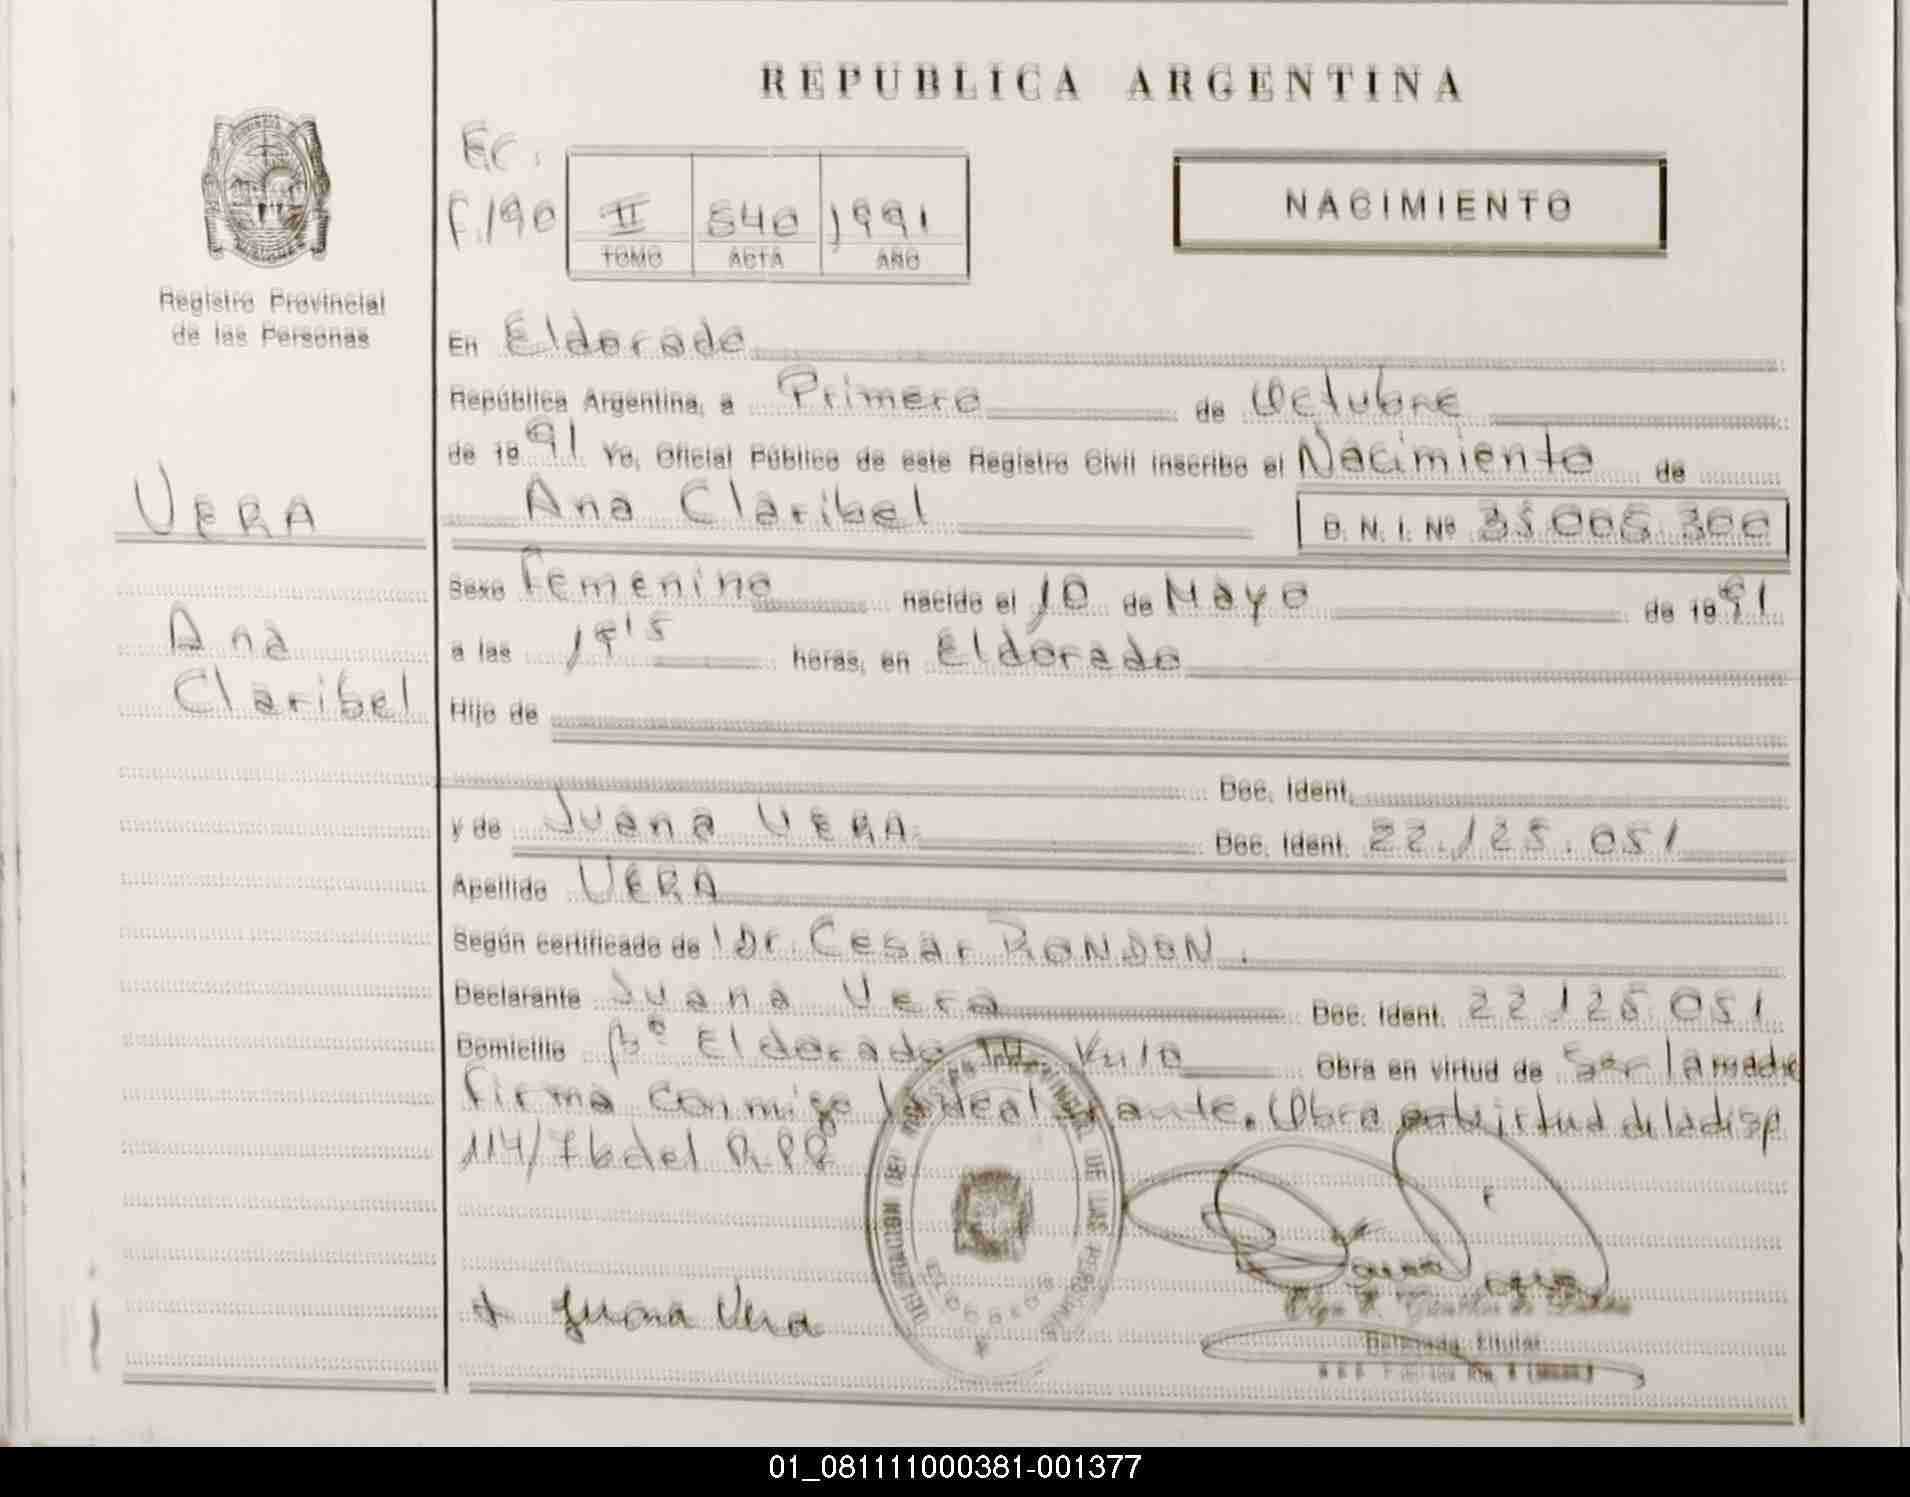 REPUBLICA ARGENTINA
E.C.
F. 190
II 540 1991
TOMO ACTA AÑO
NACIMIENTO
Registro Provincial
de las Personas
VERA
Ana
Claribel
En Eldorado
República Argentina, a Primero de Octubre
de 1991 Yo, Oficial Público de este Registro Civil inscribo el Nacimiento de
Ana Claribel D. N. I. Nº 35.005.300
Sexo Femenino nacido el 10 de Mayo de 1991
a las horas, en Eldorado
Hijo de
Doc. Ident.
y de Juana VERA Doc. Ident. 22.125.051
Apellido VERA
Según certificado de Dr. Cesar RONDON.
Declarante Juana Vera Doc. Ident. 22125051
Domicilio Bº Eldorado Obra en virtud de Ser la madre
Firma conmigo la declarante. Obra en virtud de la disp
114/76 del R.P.P
DE LAS PERSONAS
Juana Vera
Delegada Titular
01_081111000381-001377